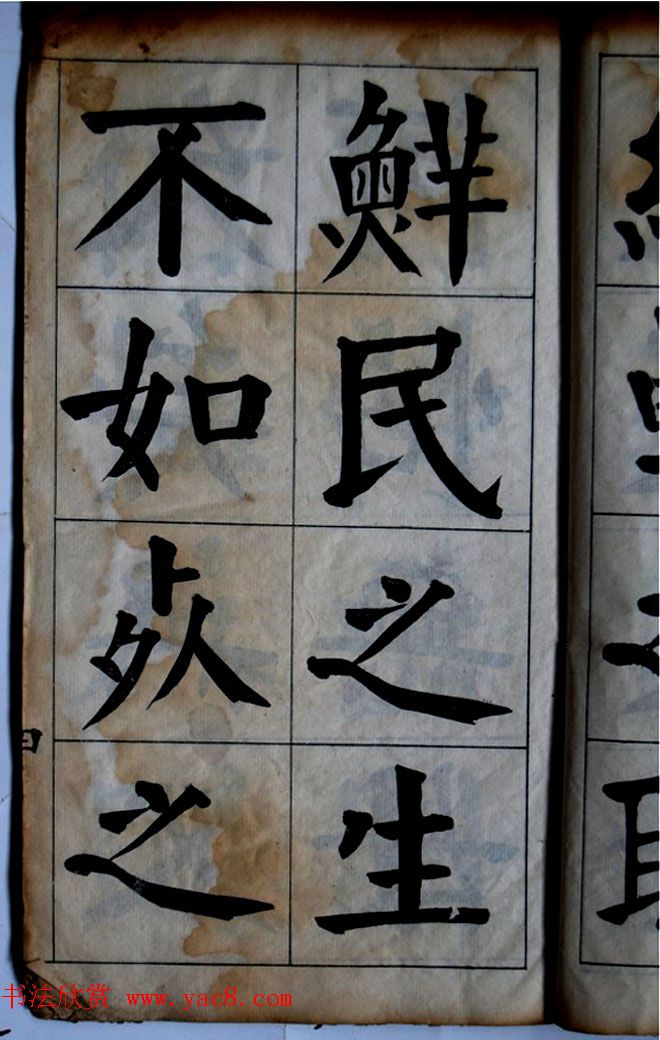 鮮民之生
不如死之
书法欣赏 www.yac8.com